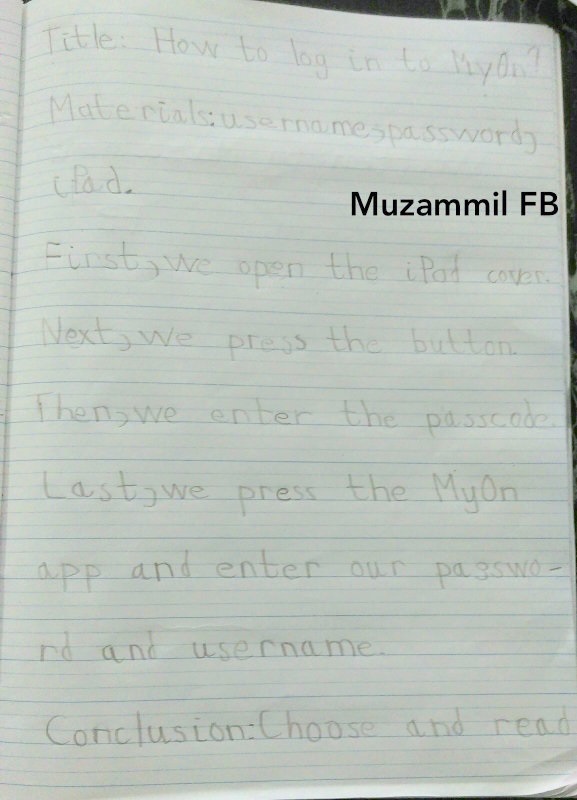 Title: How to log in to MyOn?
Materials: username, password,
iPad.
Muzammil FB
First, we open the iPad cover.
Next, we press the button.
Then, we enter the passcode.
Last, we press the MyOn
app and enter our passwo-
rd and username.
Conclusion: Choose and read